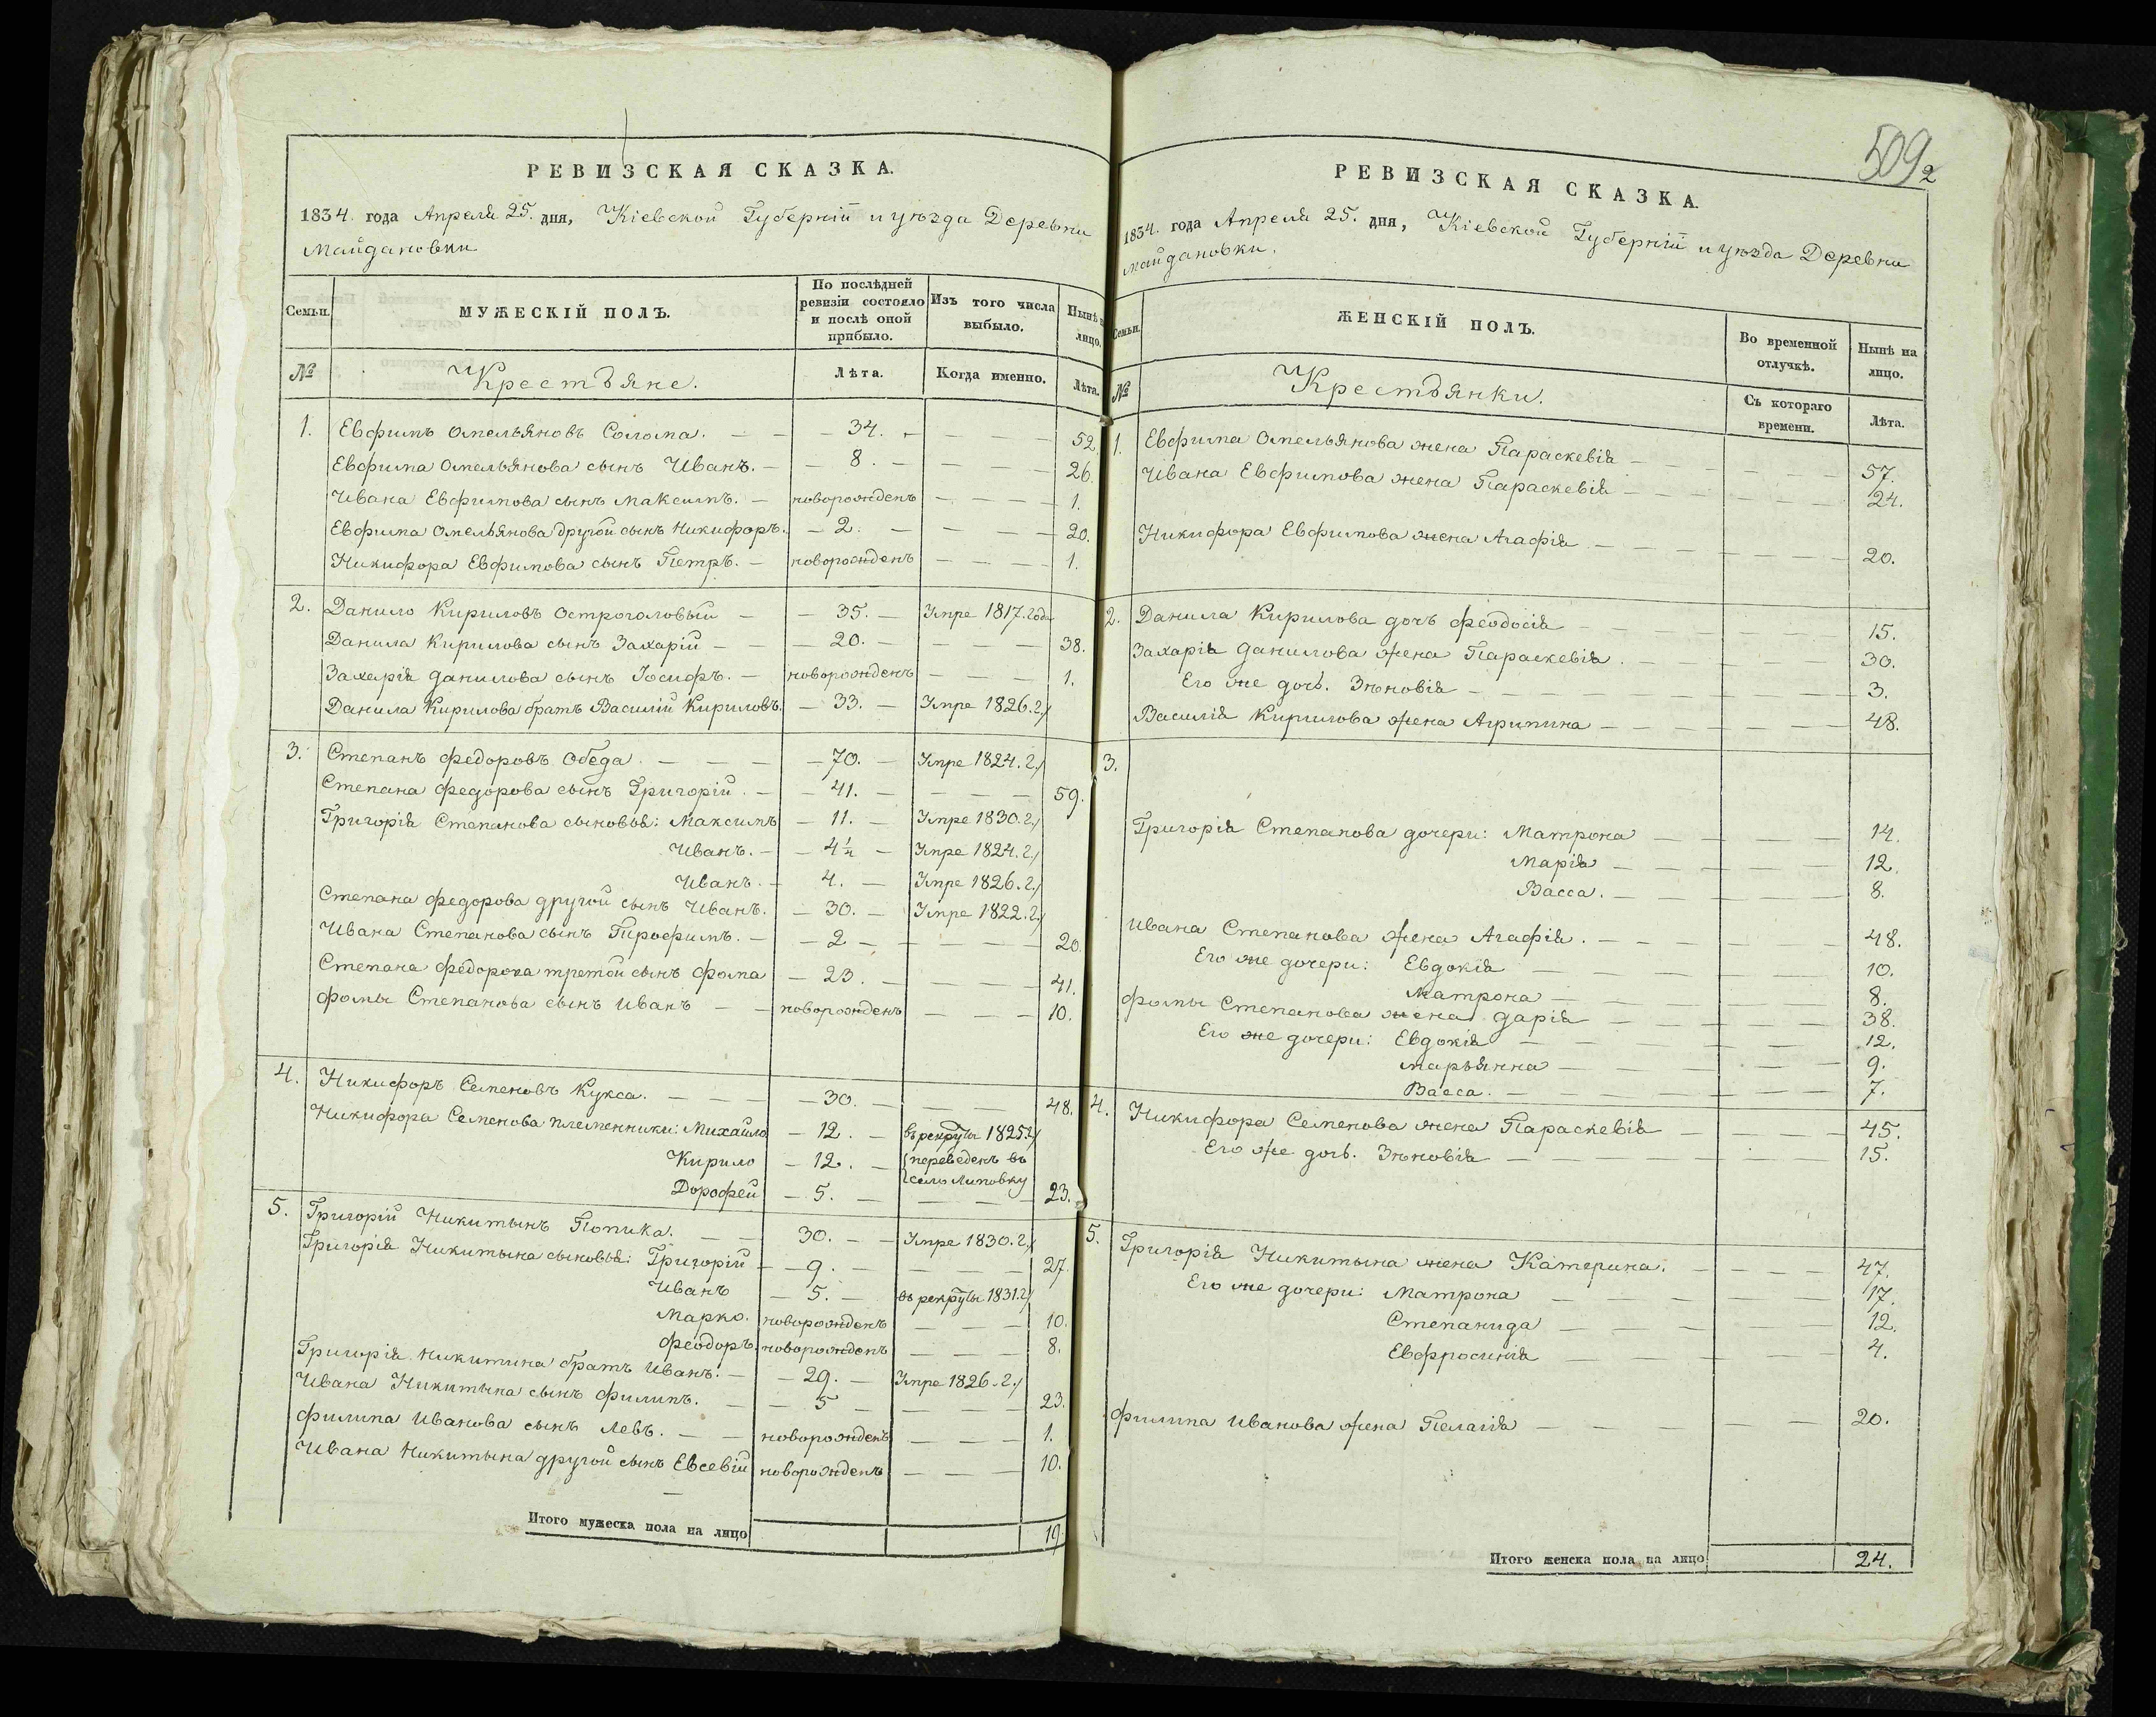 РЕВИЗСКАЯ СКАЗКА.
1834. года Апреля 25. дня, Кіевской Губерніи и уѣзда Деревни
Майдановки
Семьи.
МУЖЕСКІЙ ПОЛЪ.
По послѣдней ревизіи состояло и послѣ оной прибыло.
Изъ того числа выбыло.
Нынѣ на лицо.
№
Крестьяне.
Лѣта.
Когда именно.
Лѣта.
1. Евфимъ Омельяновъ Солома. — 34. — 52.
Евфима Омельянова сынъ Иванъ. — 8. — 26.
Ивана Евфимова сынъ Максимъ. — новорожденъ — 1.
Евфима Омельянова другой сынъ Никифоръ. — 2. — 20.
Никифора Евфимова сынъ Петръ. — новорожденъ — 1.
2. Данило Кириловъ Остроголовый — 35. — Умре 1817. года
Данила Кирилова сынъ Захарій — 20. — 38.
Захарія Данилова сынъ Іосифъ. — новорожденъ — 1.
Данила Кирилова братъ Василій Кириловъ — 33. — Умре 1826. г.
3. Степанъ Федоровъ Обеда. — 70. — Умре 1824. г.
Степана Федорова сынъ Григорій. — 41. — 59.
Григорія Степанова сыновья: Максимъ — 11. — Умре 1830. г.
Иванъ. — 4½ — Умре 1824. г.
Иванъ. — 4. — Умре 1826. г.
Степана Федорова другой сынъ Иванъ. — 30. — Умре 1822. г.
Ивана Степанова сынъ Трофимъ. — 2 — 20.
Степана Федорова третой сынъ Фома — 23. — 41.
Фомы Степанова сынъ Иванъ — новорожденъ — 10.
4. Никифоръ Семеновъ Кукса. — 30. — 48.
Никифора Семенова племенники: Михайло — 12. — въ рекруты 1825 г.
Кирило — 12. — переведенъ въ
село Липовку
Дорофей — 5. — 23.
5. Григорій Никитынъ Попика. — 30. — Умре 1830. г.
Григорія Никитына сыновья: Григорій — 9. — 27.
Иванъ — 5. — въ рекруты 1831. г.
Марко. новорожденъ — 10.
Феодоръ. новорожденъ — 8.
Григорія Никитина братъ Иванъ. — 29. — Умре 1826. г.
Ивана Никитына сынъ Филипъ. — 5 — 23.
Филипа Иванова сынъ Левъ. — новорожденъ — 1.
Ивана Никитына другой сынъ Евсевій новорожденъ — 10.
Итого мужеска пола на лицо 19.
509
2
РЕВИЗСКАЯ СКАЗКА.
1834. года Апреля 25. дня, Кіевской Губерніи и уѣзда Деревни
Майдановки.
Семьи.
ЖЕНСКІЙ ПОЛЪ.
Во временной отлучкѣ.
Нынѣ на лицо.
№
Крестьянки.
Съ котораго времени.
Лѣта.
1. Евфима Омельянова жена Параскевія — 57.
Ивана Евфимова жена Параскевія — 24.
Никифора Евфимова жена Агафія — 20.
2. Данила Кирилова дочъ Феодосія — 15.
Захарія Данилова жена Параскевія. — 30.
Его же дочь. Зѣновія — 3.
Василія Кирилова жена Агрипина — 48.
3.
Григорія Степанова дочери: Матрона — 14.
Марія — 12.
Васса. — 8.
Ивана Степанова жена Агафія. — 48.
Его же дочери: Евдокія — 10.
Матрона — 8.
Фомы Степанова жена Дарія — 38.
Его же дочери: Евдокія — 12.
Марьянна — 9.
Васса. — 7.
4. Никифора Семенова жена Параскевія — 45.
Его же дочь. Зѣновія — 15.
5. Григорія Никитына жена Катерина. — 47.
Его же дочери: Матрона — 17.
Степанида — 12.
Евфросинія — 4.
Филипа Иванова жена Пелагія — 20.
Итого женска пола на лицо 24.